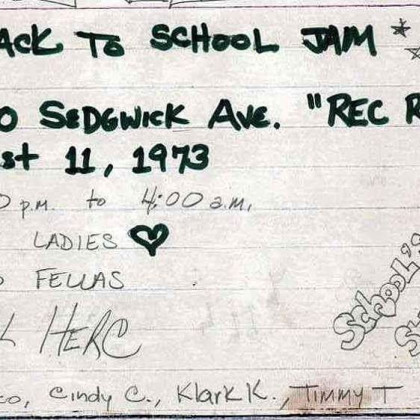 ACK TO SCHOOL JAM
0 SEDGWICK AVE. "REC R
st 11, 1973
0 p.m. to 4:00 a.m.
LADIES
FELLAS
L HERC
School's
co, Cindy C., Klark K., Timmy T